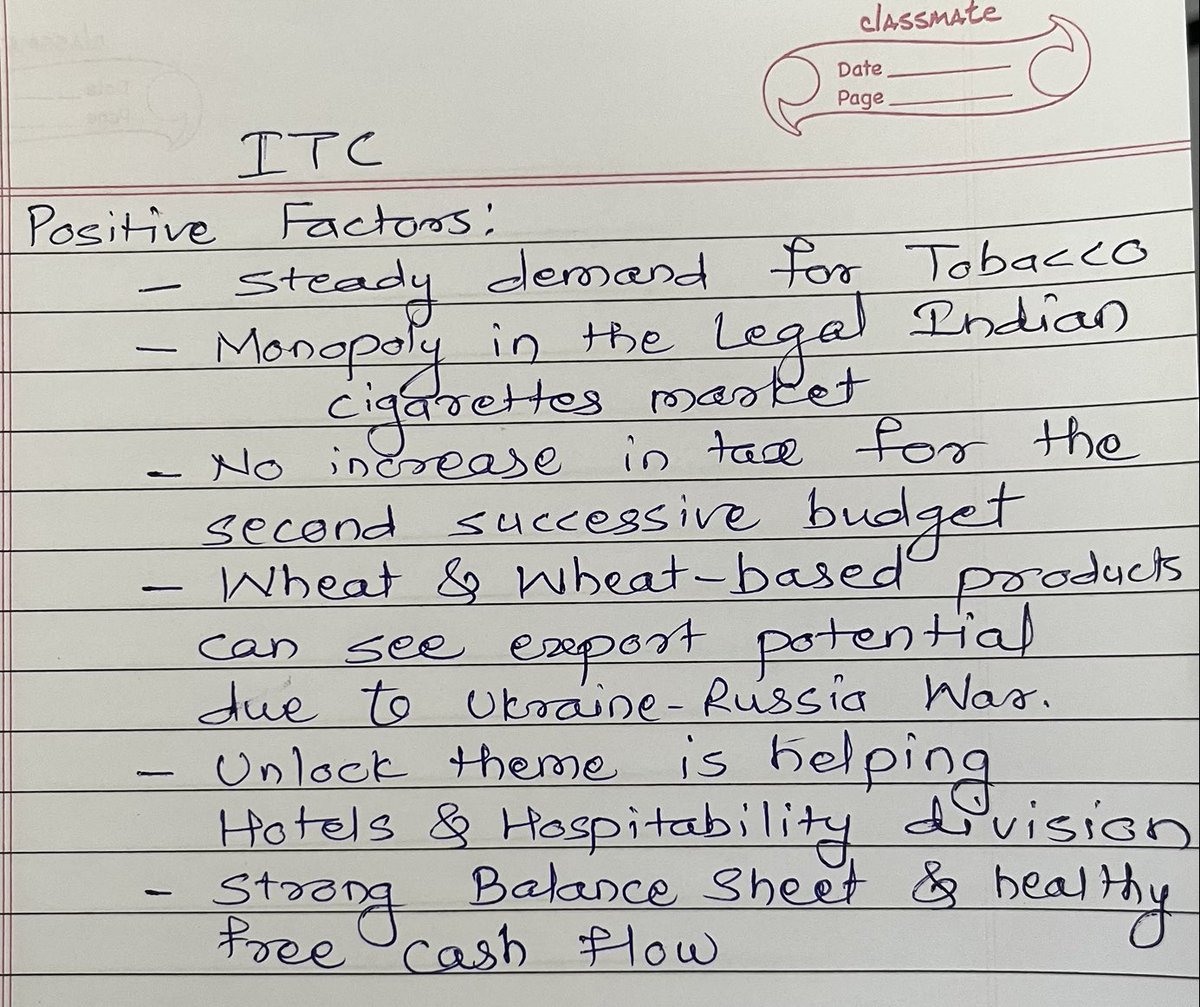 classmate
Date
Page
ITC
Positive Factors:
- Steady demand for Tobacco
- Monopoly in the Legal Indian
cigarettes market
- No increase in tax for the
second successive budget
- Wheat & Wheat-based products
can see export potential
due to Ukraine-Russia War.
- Unlock theme is helping
Hotels & Hospitability division
- Strong Balance Sheet & healthy
free cash flow